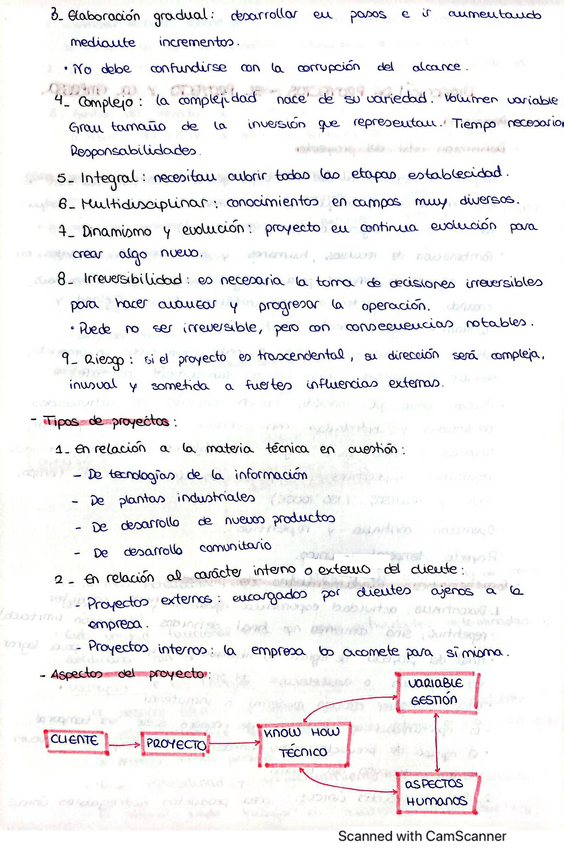 3_ Elaboración gradual: desarrollar en pasos e ir aumentando
mediante incrementos.
· No debe confundirse con la corrupción del alcance.
4_ Complejo: la complejidad nace de su variedad. Volumen variable
Gran tamaño de la inversión que representan. Tiempo necesario
Responsabilidades.
5_ Integral: necesitan cubrir todas las etapas establecidad.
6_ Multidisciplinar: conocimientos en campos muy diversos.
7_ Dinamismo y evolución: proyecto en continua evolución para
crear algo nuevo.
8_ Irreversibilidad: es necesaria la toma de decisiones irreversibles
para hacer avanzar y progresar la operación.
· Puede no ser irreversible, pero con consecuencias notables.
9_ Riesgo: si el proyecto es trascendental, su dirección será compleja,
inusual y sometida a fuertes influencias externas.
- Tipos de proyectos:
1_ En relación a la materia técnica en cuestión:
- De tecnologías de la información
- De plantas industriales
- De desarrollo de nuevos productos
- De desarrollo comunitario
2_ En relación al carácter interno o externo del cliente:
- Proyectos externos: encargados por clientes ajenos a la
empresa.
- Proyectos internos: la empresa los acomete para sí misma.
- Aspectos del proyecto:
CLIENTE
PROYECTO
KNOW HOW
TÉCNICO
VARIABLE
GESTIÓN
ASPECTOS
HUMANOS
Scanned with CamScanner